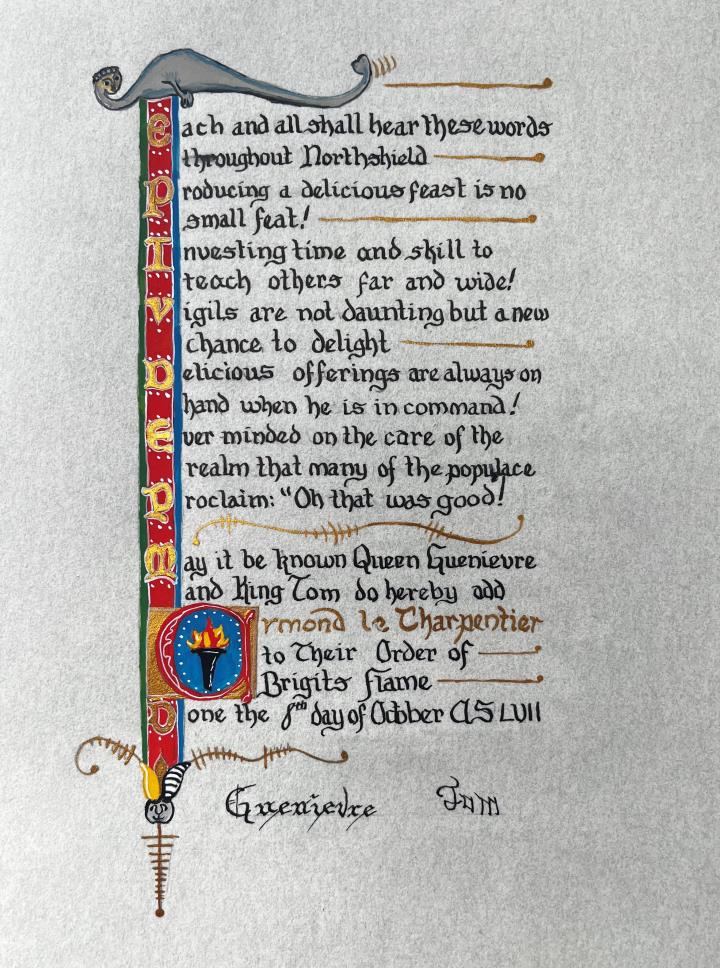 Each and all shall hear these words
throughout Northshield
Producing a delicious feast is no
small feat!
Investing time and skill to
teach others far and wide!
Vigils are not daunting but a new
chance to delight
Delicious offerings are always on
hand when he is in command!
Ever minded on the care of the
realm that many of the populace
Proclaim: "Oh that was good!
May it be known Queen Guenievre
and King Tom do hereby add
Ormond le Charpentier
to Their Order of
Brigits Flame
Done the 8th day of October AS LVII
Guenievre Tom